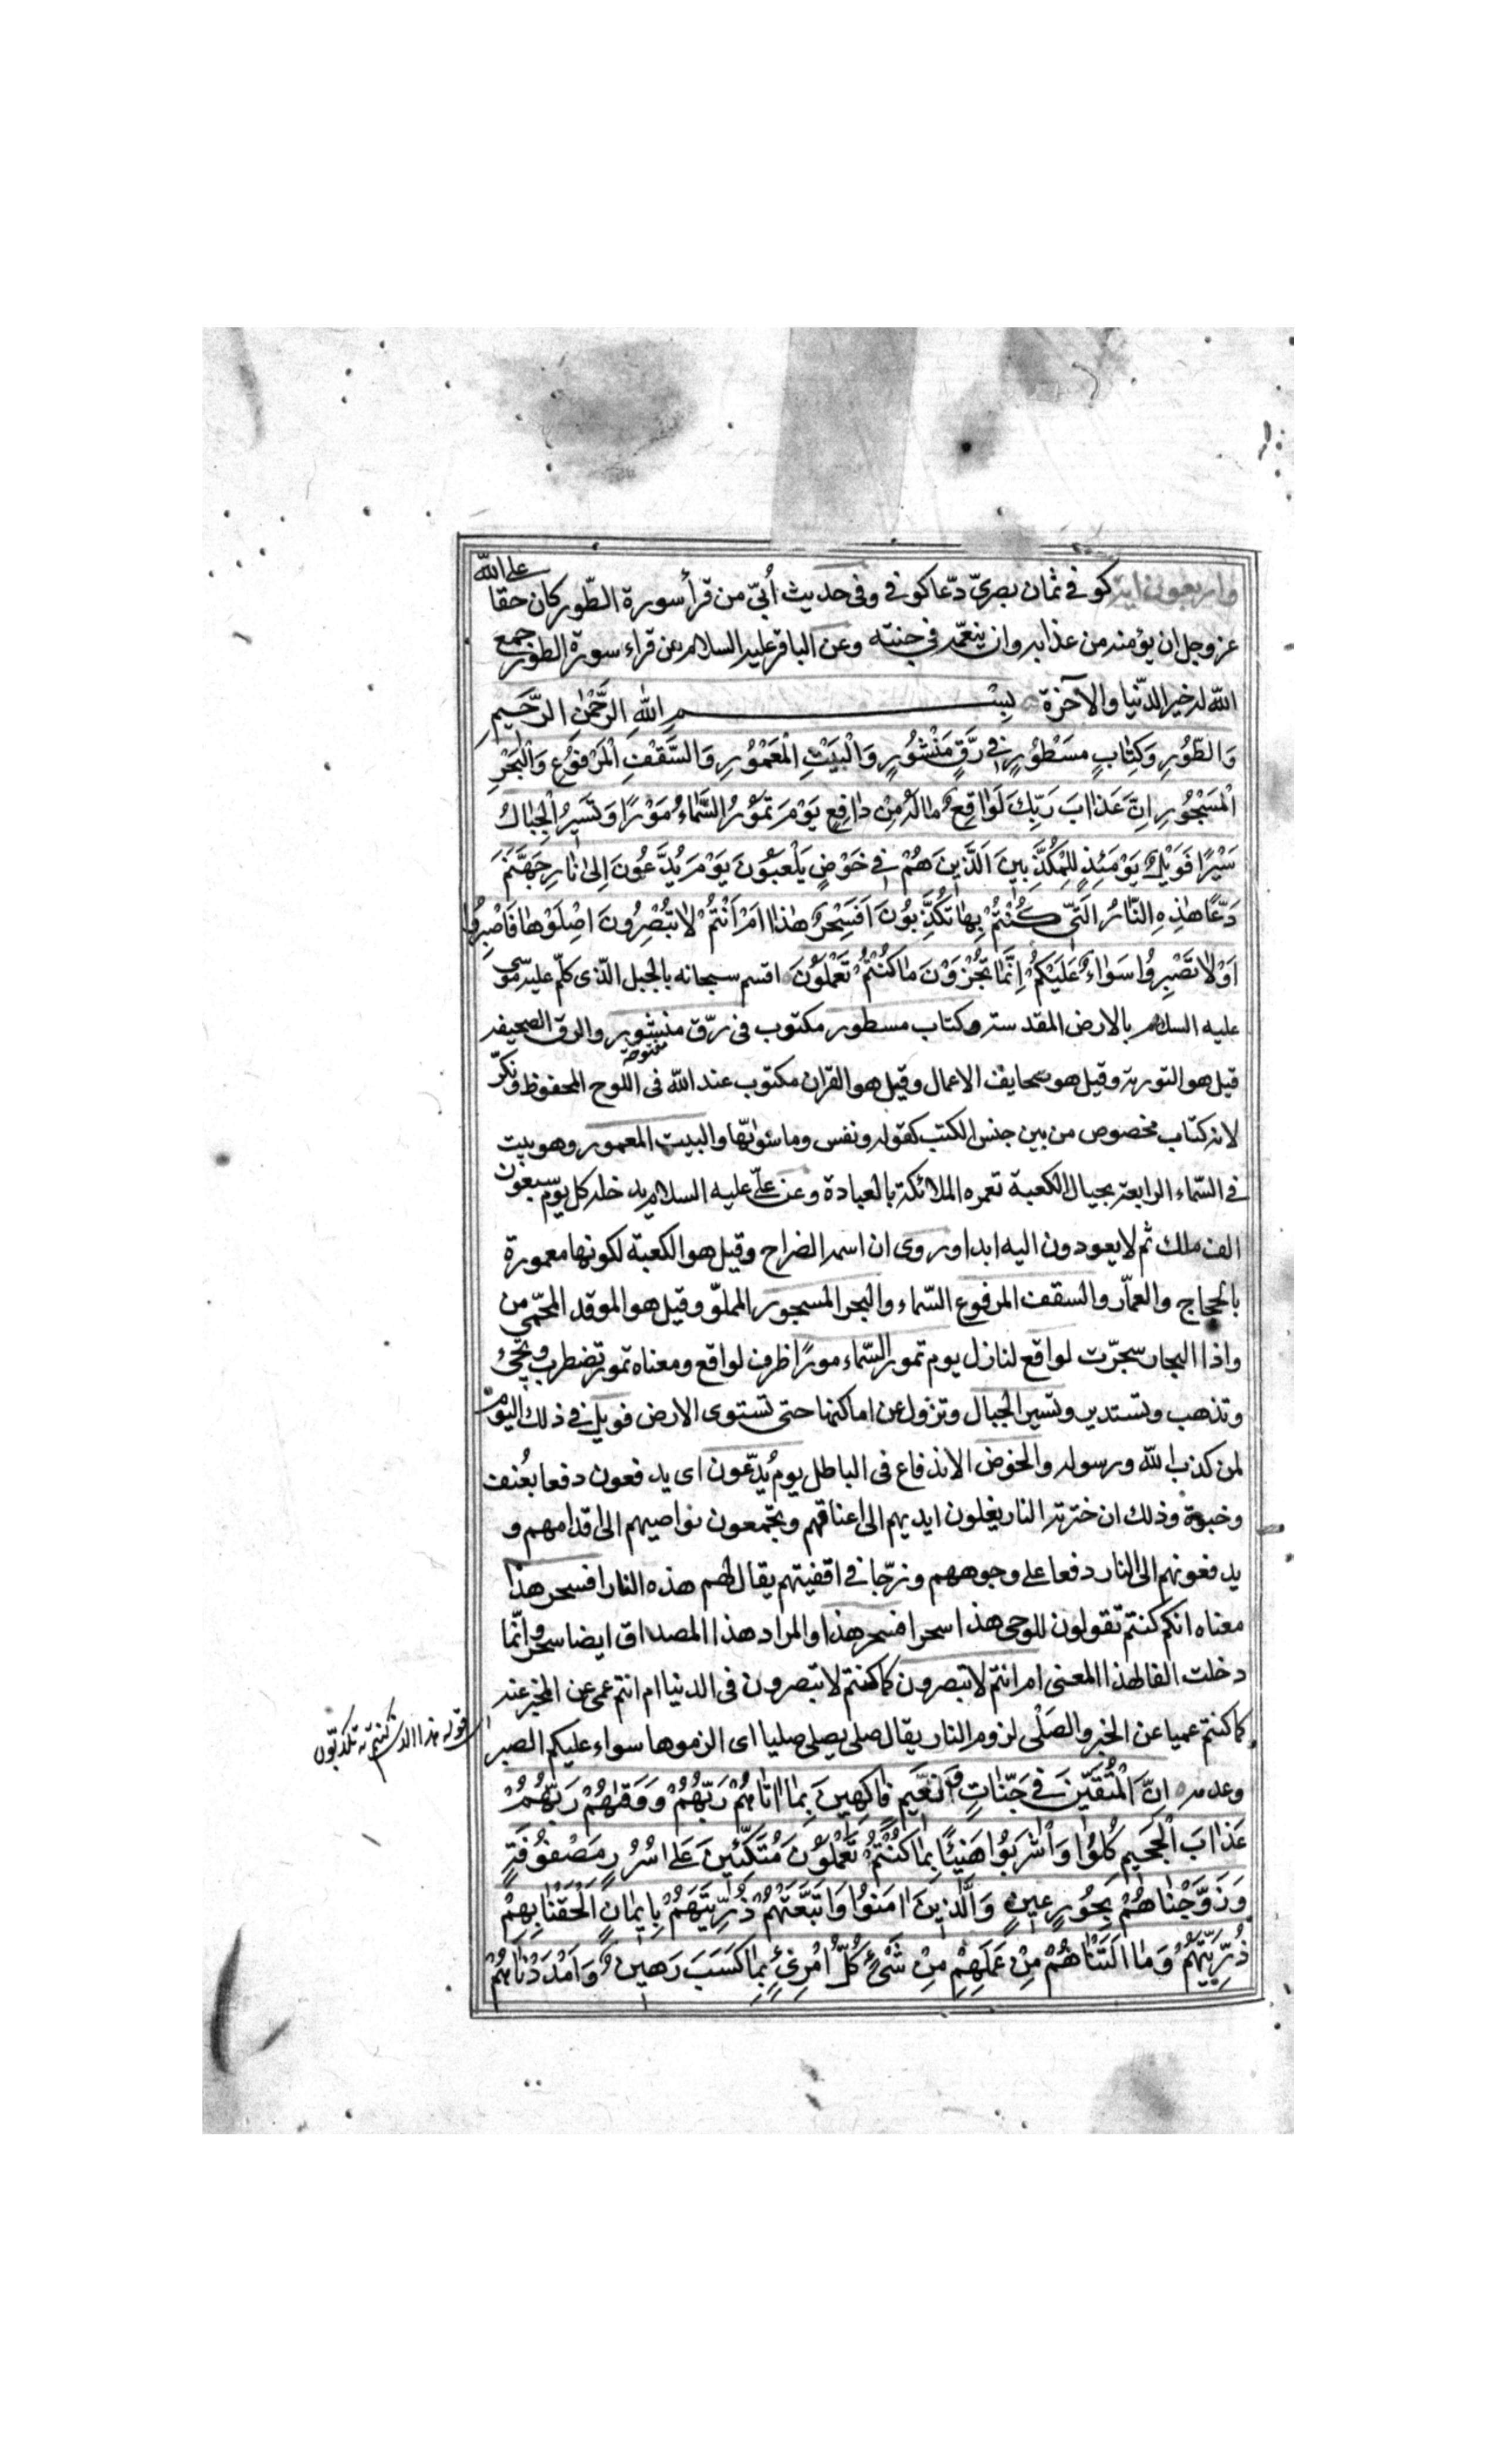 واربعون اية كوفي ثمان بصريّ دعّا كوفي وفى حديث اُبيّ من قرأ سورة الطّور كان حقا على الله
عز وجل ان يؤمنه من عذابه وان ينعّمه في جنته وعن الباقر عليه السلام من قراء سورة الطور جمع
الله له خير الدّنيا والآخرة بِسْمِ اللهِ الرَّحْمٰنِ الرَّحِيمِ
وَالطُّورِ وَكِتٰابٍ مَسْطُورٍ فِي رَقٍّ مَنْشُورٍ وَالْبَيْتِ الْمَعْمُورِ وَالسَّقْفِ الْمَرْفُوعِ وَالْبَحْرِ
الْمَسْجُورِ اِنَّ عَذٰابَ رَبِّكَ لَوٰاقِعٌ مٰا لَهُ مِنْ دٰافِعٍ يَوْمَ تَمُورُ السَّمٰاءُ مَوْرًا وَتَسِيرُ الْجِبٰالُ
سَيْرًا فَوَيْلٌ يَوْمَئِذٍ لِلْمُكَذِّبِينَ اَلَّذِينَ هُمْ فِي خَوْضٍ يَلْعَبُونَ يَوْمَ يُدَعُّونَ اِلىٰ نٰارِ جَهَنَّمَ
دَعًّا هٰذِهِ النّٰارُ الَّتِي كُنْتُمْ بِهٰا تُكَذِّبُونَ اَفَسِحْرٌ هٰذٰا اَمْ اَنْتُمْ لٰا تُبْصِرُونَ اِصْلَوْهٰا فَاصْبِرُوا
اَوْ لٰا تَصْبِرُوا سَوٰاءٌ عَلَيْكُمْ اِنَّمٰا تُجْزَوْنَ مٰا كُنْتُمْ تَعْمَلُونَ اقسم سبحانه بالجبل الّذى كلّم عليه موسى
عليه السلام بالارض المقدسة وكتاب مسطور مكتوب فى رقّ منشور والرق الصحيفة
مفتوحة
قيل هو التورية وقيل هو صحايف الاعمال وقيل هو القران مكتوب عند الله فى اللوح المحفوظ ونكّر
لانه كتاب مخصوص من بين جنس الكتب كقوله ونفس وما سوّاها والبيت المعمور وهو بيت
فى السّماء الرابعة بحيال الكعبة تعمره الملائكة بالعبادة وعن علىّ عليه السلام يدخله كل يوم سبعون
الف ملك ثم لا يعودون اليه ابدا وروى ان اسمه الضراح وقيل هو الكعبة لكونها معمورة
بالحجاج والعمّار والسقف المرفوع السّماء والبحر المسجور المملوّ وقيل هو الموقد المحمّى من
واذا البحار سجرّت لواقع لنازل يوم تمور السّماء مورًا ظرف لواقع ومعناه تمور تضطرب وتجىء
وتذهب وتستدير وتسير الجبال وتزول عن اماكنها حتى تستوى الارض فويل فى ذلك اليوم
لمن كذب الله ورسوله والخوض الاندفاع فى الباطل يومُ يُدعّون اى يدفعون دفعا بعُنف
وذلك ان خزنة النار يغلون ايديهم الى اعناقهم ويجمعون نواصيهم الى اقدامهم و
يدفعونهم الى النار دفعا على وجوههم وزخّا فى اقفيتهم يقال لهم هذه النار افسحر هذا
معناه انكم كنتم تقولون للوحى هذا سحر افسحر هذا والمراد هذا المصداق ايضا سحر وانّما
دخلت الفا لهذا المعنى ام انتم لا تبصرون كما كنتم لا تبصرون فى الدنيا ام انتم عمى عن المخبر عنه
كما كنتم عميا عن الخبر والصَلْى لزوم النار يقال صلى يصلى صليا اى الزموها سواء عليكم الصبر
قوله هذا الذى كنتم به تكذبون
وعدمه اِنَّ الْمُتَّقِينَ فِي جَنّٰاتٍ وَنَعِيمٍ فٰاكِهِينَ بِمٰا اٰتٰاهُمْ رَبُّهُمْ وَوَقٰيهُمْ رَبُّهُمْ
عَذٰابَ الْجَحِيمِ كُلُوا وَاشْرَبُوا هَنِيئًا بِمٰا كُنْتُمْ تَعْمَلُونَ مُتَّكِئِينَ عَلىٰ سُرُرٍ مَصْفُوفَةٍ
وَزَوَّجْنٰاهُمْ بِحُورٍ عِينٍ وَالَّذِينَ اٰمَنُوا وَاتَّبَعَتْهُمْ ذُرِّيَّتُهُمْ بِاِيمٰانٍ اَلْحَقْنٰا بِهِمْ
ذُرِّيَّتَهُمْ وَمٰا اَلَتْنٰاهُمْ مِنْ عَمَلِهِمْ مِنْ شَىْءٍ كُلُّ امْرِئٍ بِمٰا كَسَبَ رَهِينٌ وَاَمْدَدْنٰاهُمْ